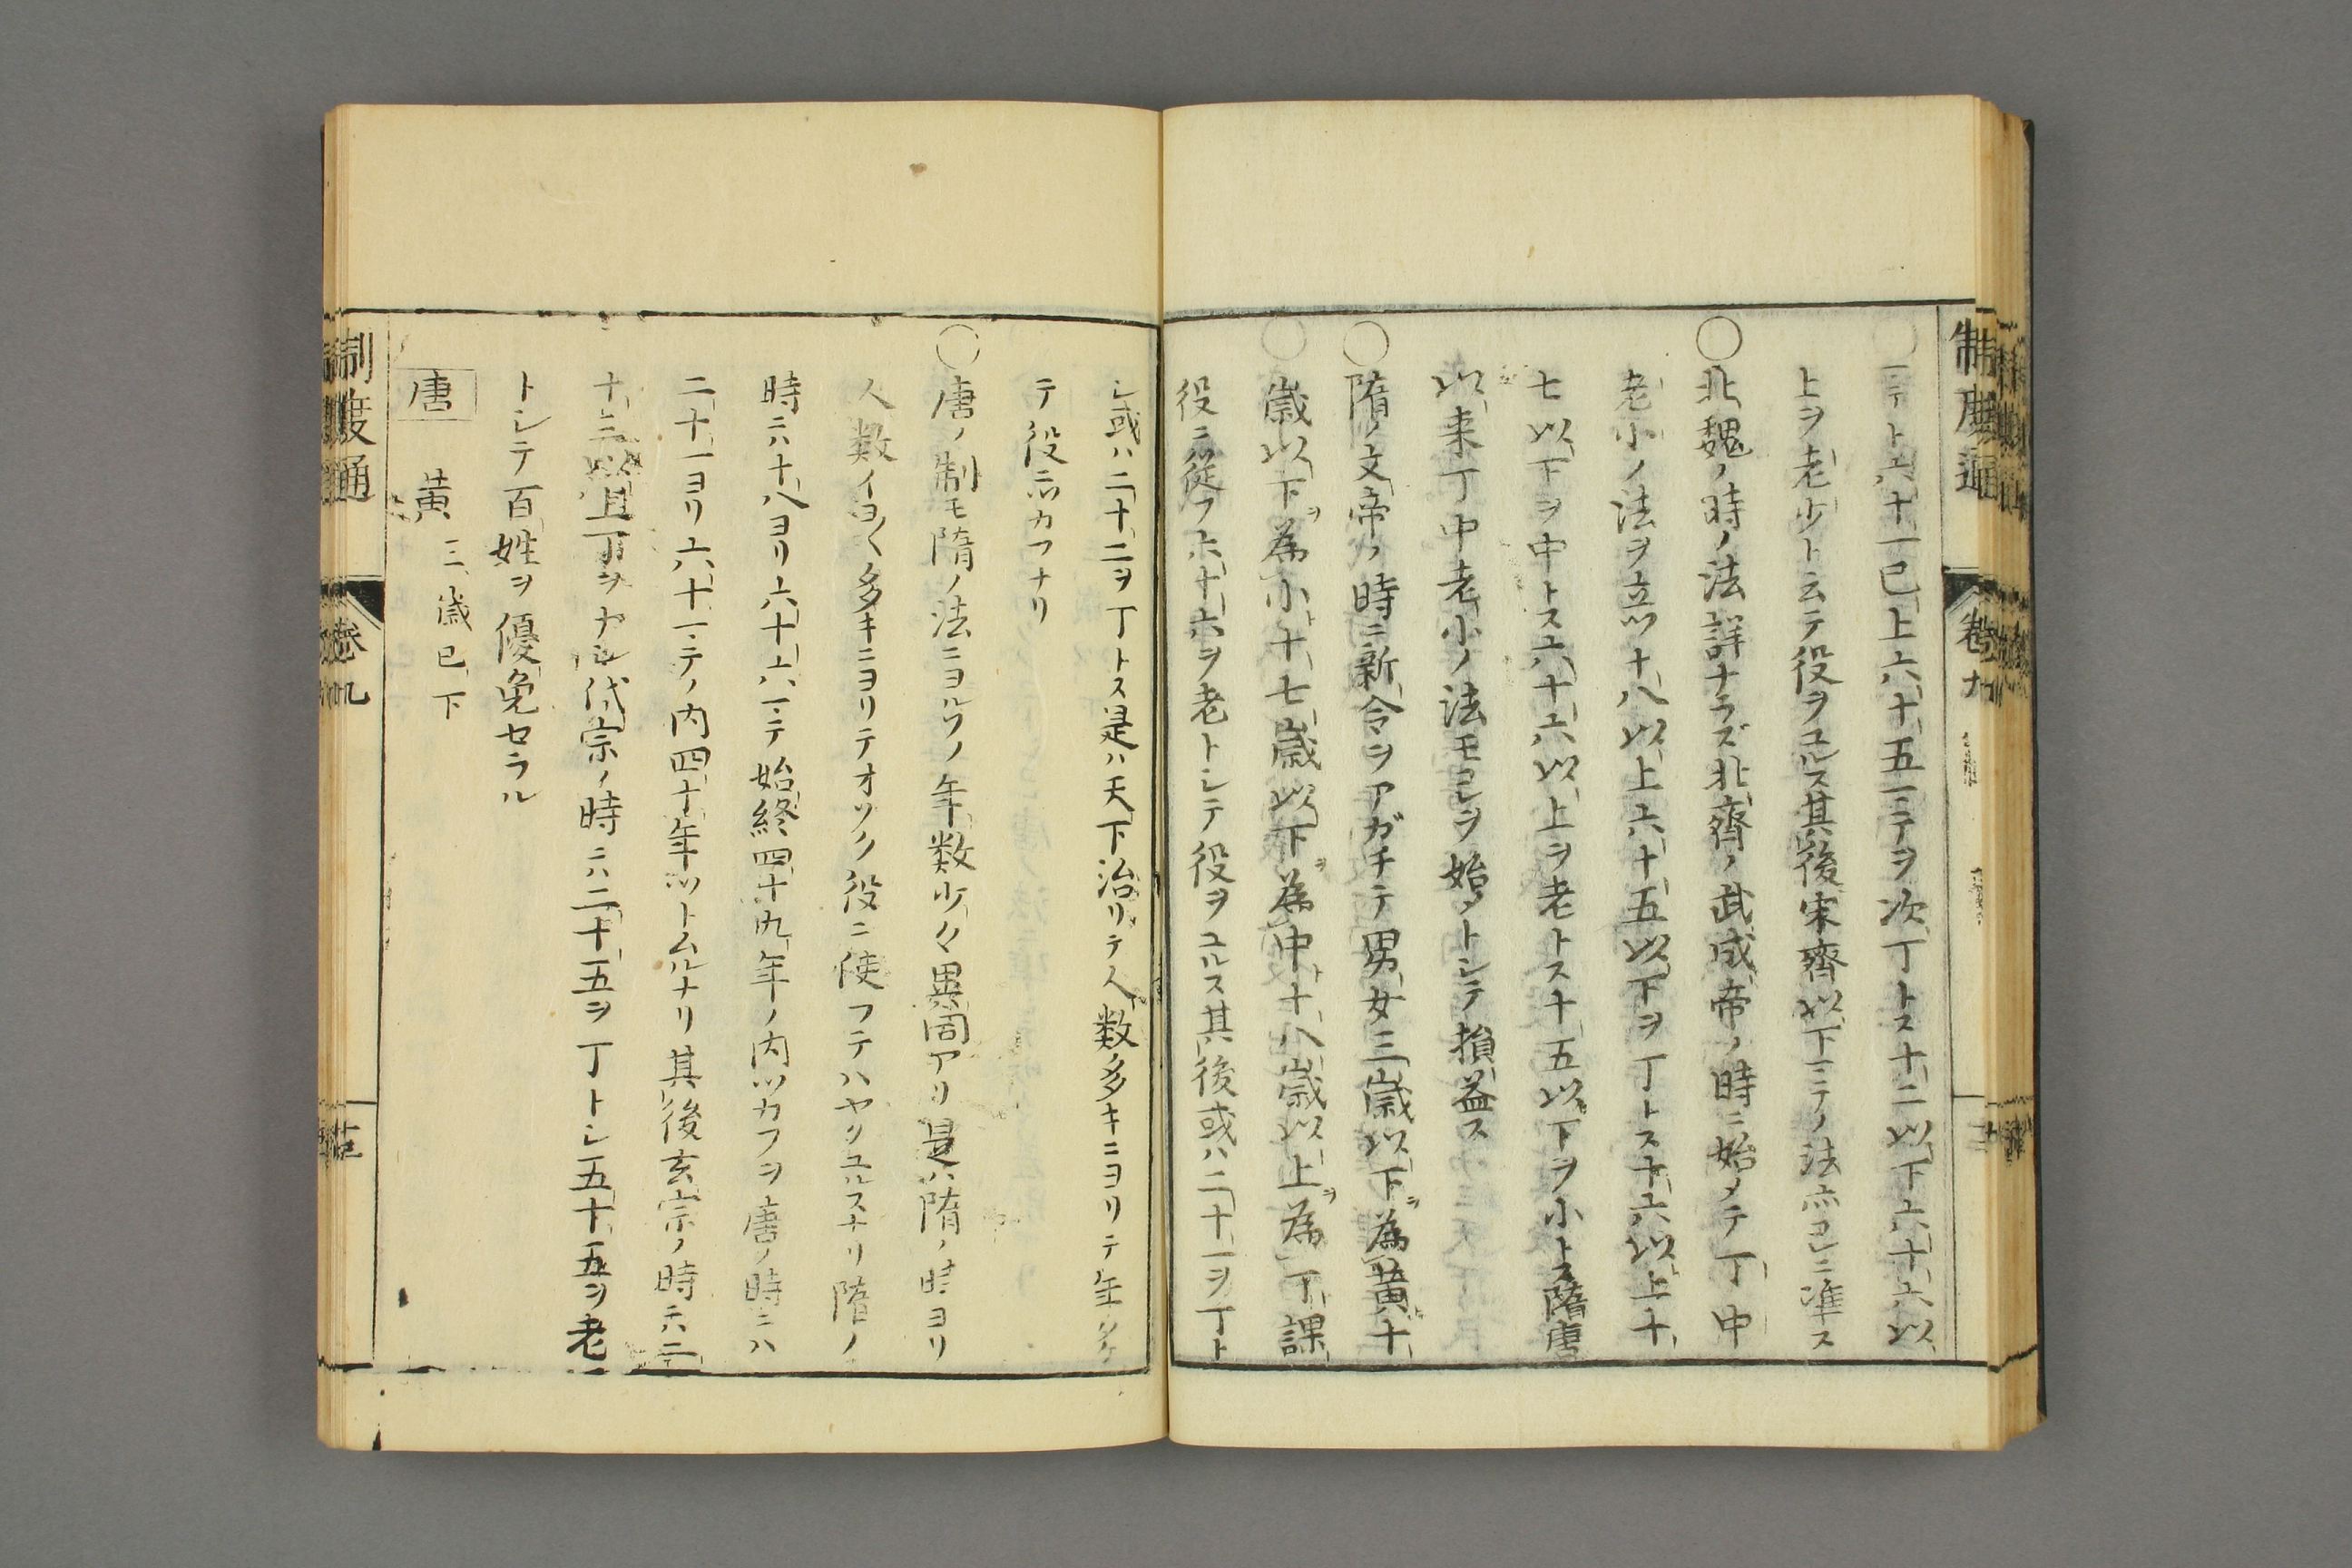 制度通 巻九
ニテト六十一已上六十五ニテヲ次丁トス十二以下六十六以
上ヲ老少ト云テ役ヲユルス其後宋齊以下ニテノ法亦コレニ準ス
○北魏ノ時ノ法詳ナラズ北齊ノ武成帝ノ時ニ始メテ丁中
老小ノ法ヲ立ツ十八以上六十五以下ヲ丁トス十六以上十
七以下ヲ中トス六十六以上ヲ老トス十五以下ヲ小トス隋唐
以来丁中老小ノ法モコレヲ始メトシテ損益ス
○隋ノ文帝ノ時ニ新令ヲアガチテ男女三歳以下ヲ為黄ト十
歳以下ヲ為小ト十七歳以下ヲ為中ト十八歳以上ヲ為丁課
役ニ従フ六十六ヲ老トシテ役ヲユルス其後或ハ二十一ヲ丁ト
シ或ハ二十二ヲ丁トス是ハ天下治リテ人数多キニヨリテ年
テ役ニツカフナリ
○唐ノ制モ隋ノ法ニヨルソノ年数少々異同アリ是ハ隋ノ時ヨリ
人数イヨ〱多キニヨリテオソク役ニ使フテハヤクユルスナリ隋ノ
時ニハ十八ヨリ六十六ニテ始終四十九年ノ内ツカフヲ唐ノ時ニハ
二十一ヨリ六十一ニテノ内四十年ツトムルナリ其後玄宗ノ時ニハ二
十三以上丁ヲナシ代宗ノ時ニハ二十五ヲ丁トシ五十五ヲ老
トシテ百姓ヲ優免セラル
唐 黄 三歳已下
制度通 巻九